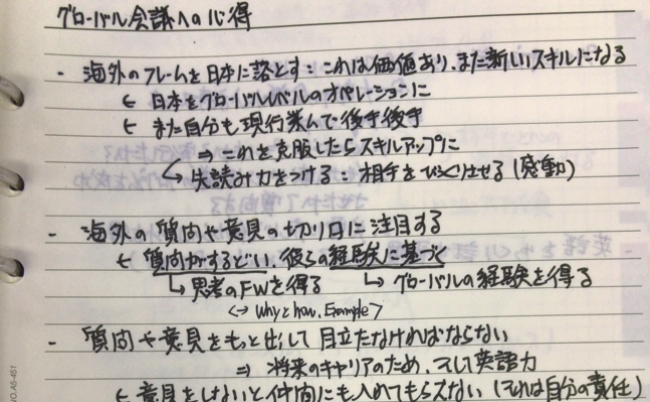 グローバル会議への心得
- 海外のフレームを日本に落とす：これは価値あり、また新しいスキルになる
← 日本をグローバルレベルのオペレーションに
← また自分も現行業んで後手後手
⇒ これを克服したらスキルアップに
↳ 先読み力をつける：相手をびっくりさせる（感動）
- 海外の質問や意見の切り口に注目する
← 質問がするどい、彼らの経験に基づく
↳ 思考のFWを得る ↳ グローバルの経験を得る
<-> Why と how, Example>
- 質問や意見をもっと出して目立たなければならない
⇒ 将来のキャリアのため、そして英語力
← 意見をしないと仲間にも入れてもらえない（それは自分の責任）
NO. A5-4S1